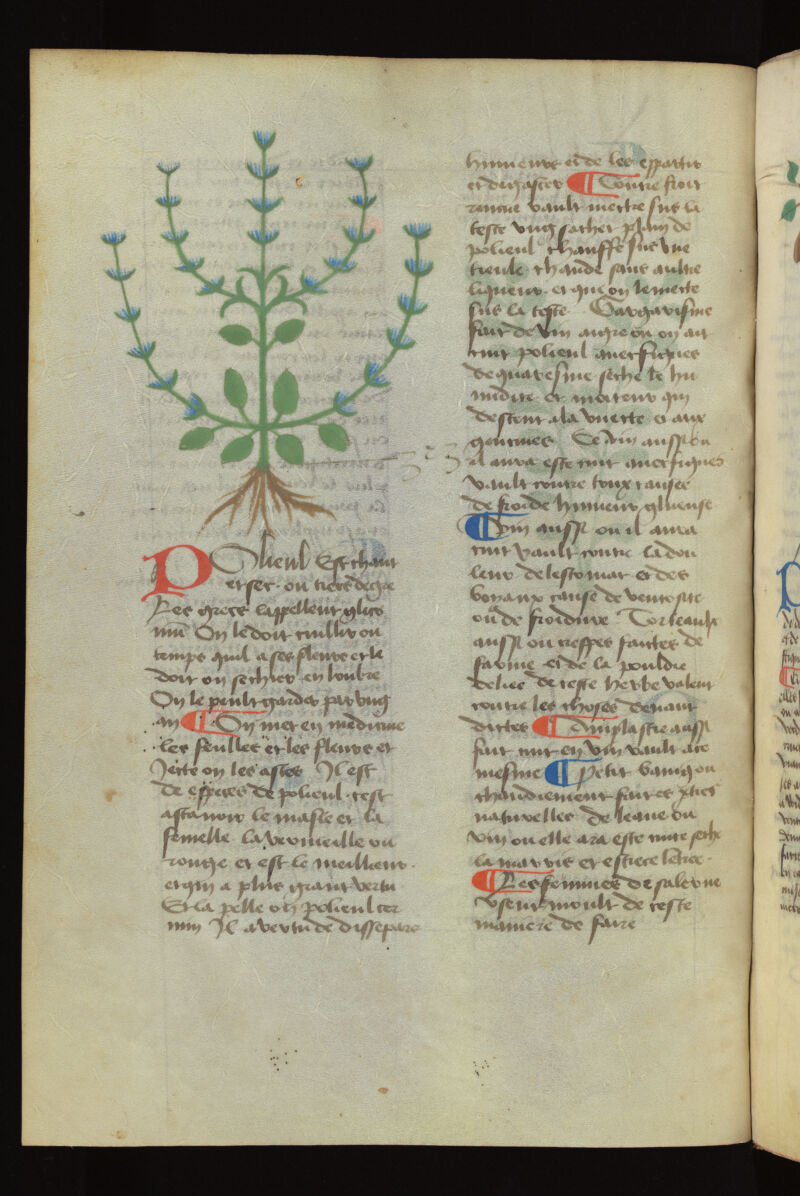 Polieul Est chaut
et sec. ou tiers degre
Les grecs lappellent glico
num On le doit cuillir ou
temps quil a ses fleurs et le
doit on sechier en lombre
On le peult garder par ung
an ¶ On met en medicine
les feulles et les fleurs et
Jecte on les astes Il est
de especes de polieul. cest
assavoir le masle et la
femelle la vermeille ou
rouge et est le meilleur.
et qui a plus grant vertu
Et la pelle on polieul cer
uin Il a vertu de dissepare
humeurs et de les espartir
et degaster ¶ Contre froit
reume vault mectre sus la
teste ung sachet plain de
polieul chauffe sus une
tieule chaude sans aultre
liqueur. et que on le mecte
sus la teste Gargarisme
fait de vin aigre ou on ait
cuit polieul avec figues
de quaresme seche le hu
midite et moiteur qui
descent a la luuette et aux
gencives Le vin aussi ou
il aura este cuit avec figues
vault contre toux causee
de froide humeur gluense
¶ Vin aussi ou il aura
cuit vault contre la dou
leur de lestomac et des
boyaux cause de ventosite
ou de froidure Torteaulx
aussi ou crespes faictes de
farine et de la pouldre
delies de ceste herbe valent
contre les choses devant
dictes ¶ Emplastre aussi
fait cuit en vin vault a ce
mesme ¶ Petit baing ou
chaudiement fait es parties
naturelles de leaue ou
vin ou elle ara este cuite seche
la marris et estrece
¶ Les femmes de salerne
usent moult de ceste
maniere de faire